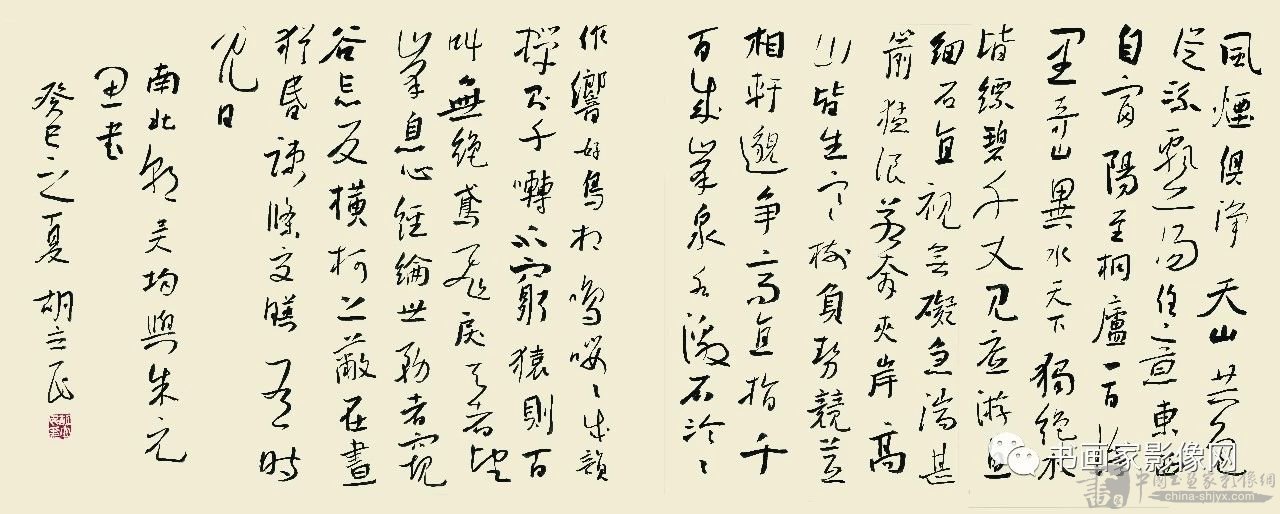 風煙俱淨天山共色
從流飄蕩任意東西
自富陽至桐廬一百許
里奇山異水天下獨絕水
皆縹碧千丈見底游魚
細石直視無礙急湍甚
箭猛浪若奔夾岸高
山皆生寒樹負勢競上互
相軒邈爭高直指千
百成峯泉水激石泠〻
作響好鳥相鳴嚶〻成韻
蟬則千囀不窮猿則百
叫無絕鳶飛戾天者望
峯息心經綸世務者窺
谷忘反橫柯上蔽在晝
猶昏疎條交映有時
見日
南北朝吳均與朱元
思書
癸巳之夏 胡立民
书画家影像网
中國書畫家影像網
china-shjyx.com